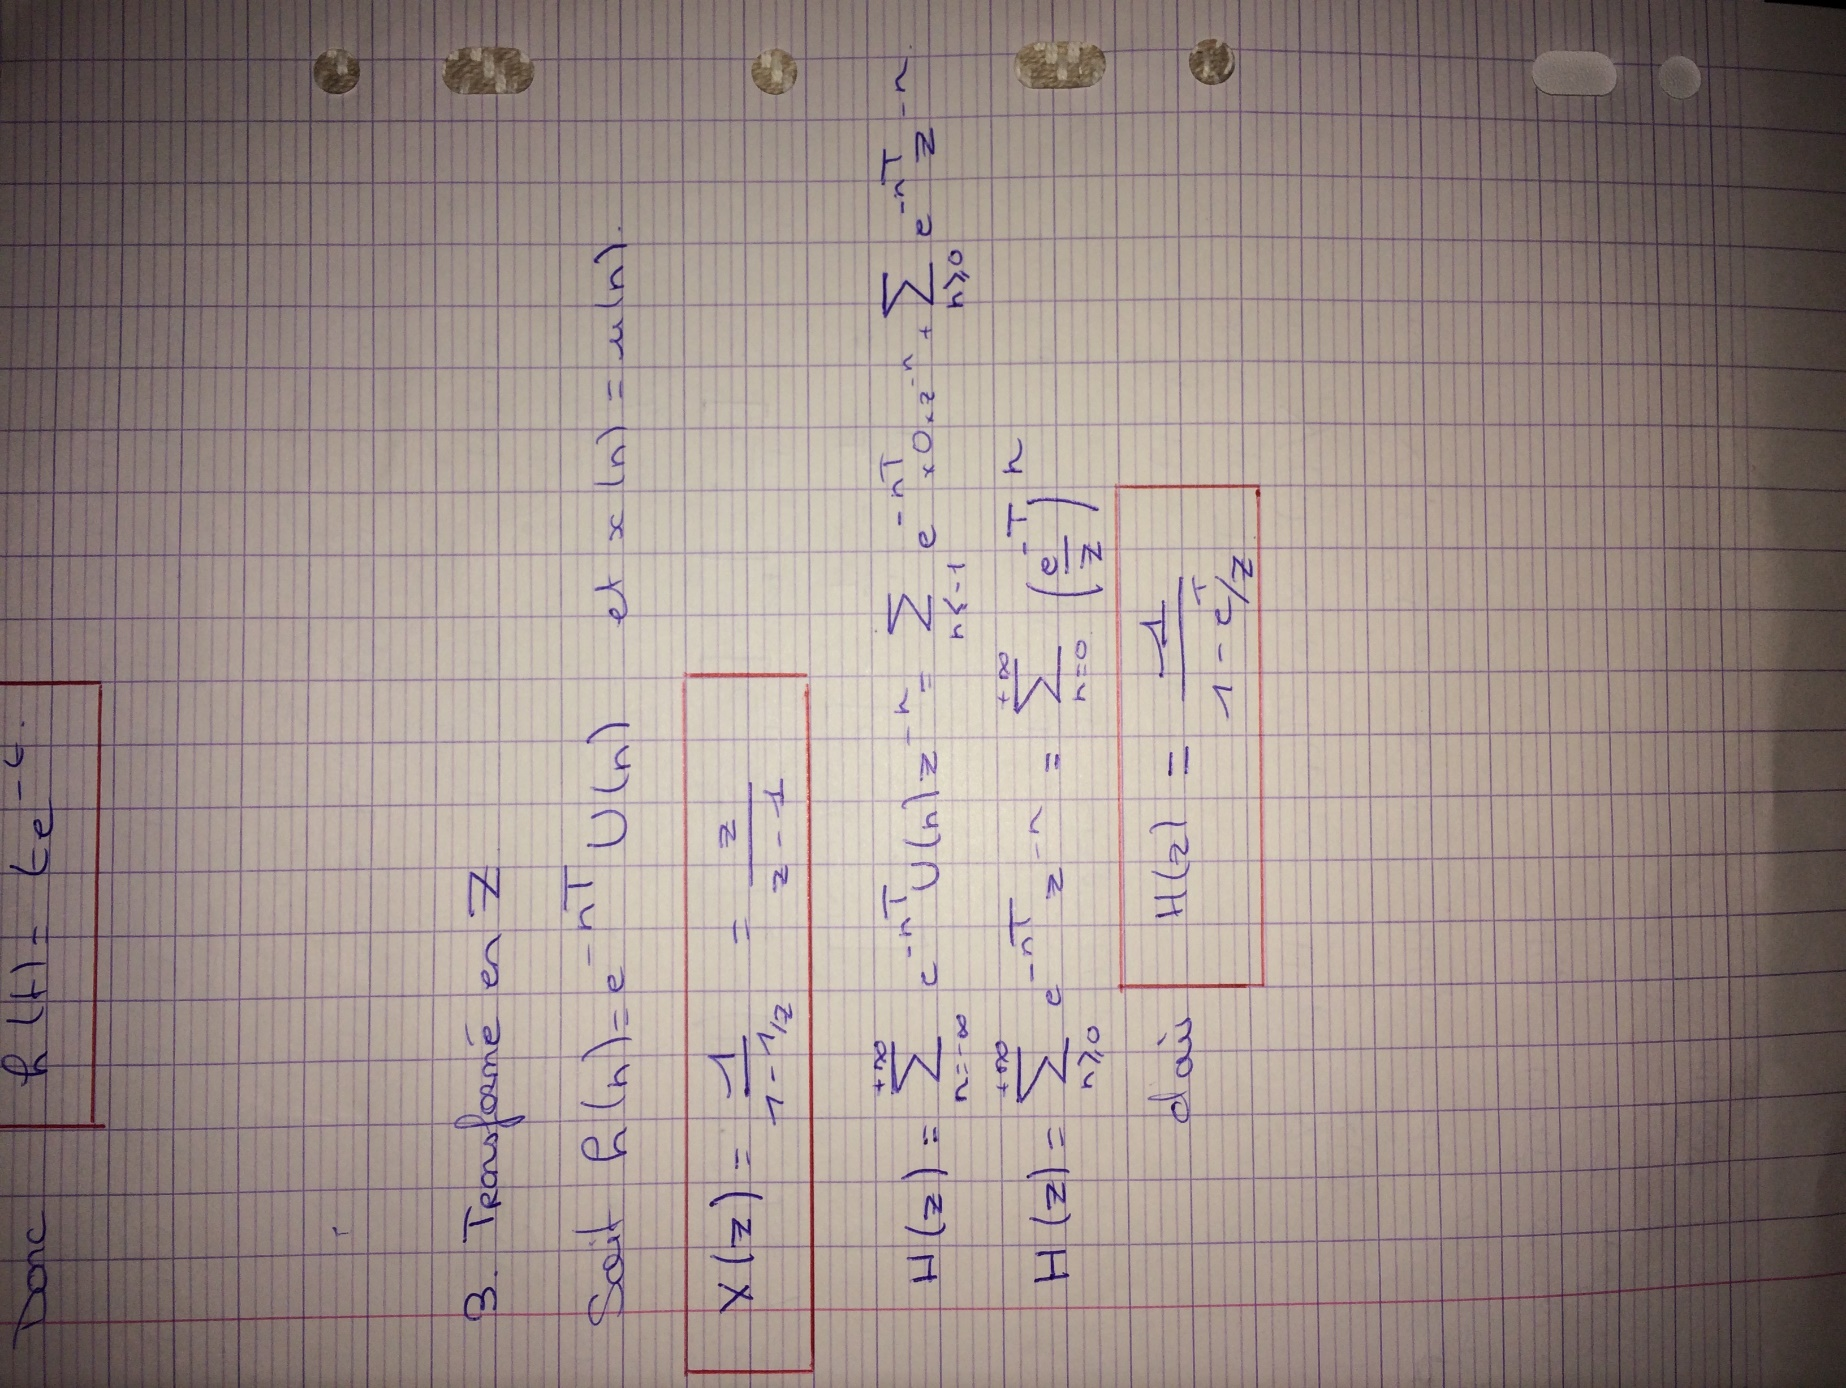 Donc h(t) = te^{-t}.
3. Transformé en Z
Soit h(n) = e^{-nT} U(n) et x(n) = u(n).
X(z) = \frac{1}{1 - 1/z} = \frac{z}{z - 1}
H(z) = \sum_{n=-\infty}^{+\infty} e^{-nT} U(n) z^{-n} = \sum_{n \leqslant -1} e^{-nT} \times 0 \times z^{-n} + \sum_{n \geqslant 0} e^{-nT} z^{-n}
H(z) = \sum_{n \geqslant 0}^{+\infty} e^{-nT} z^{-n} = \sum_{n=0}^{+\infty} \left(\frac{e^{-T}}{z}\right)^n
d'où H(z) = \frac{1}{1 - e^{-T}/z}